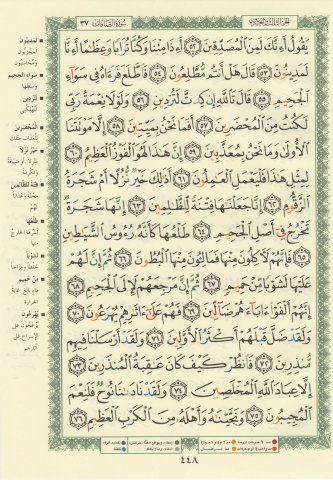 الجزء الثالث والعشرون
سورة الصافات ٣٧
يَقُولُ أَءِنَّكَ لَمِنَ ٱلْمُصَدِّقِينَ ٥٢ أَءِذَا مِتْنَا وَكُنَّا تُرَابًا وَعِظَٰمًا أَءِنَّا
لَمَدِينُونَ ٥٣ قَالَ هَلْ أَنتُم مُّطَّلِعُونَ ٥٤ فَٱطَّلَعَ فَرَءَاهُ فِى سَوَآءِ
ٱلْجَحِيمِ ٥٥ قَالَ تَٱللَّهِ إِن كِدتَّ لَتُرْدِينِ ٥٦ وَلَوْلَا نِعْمَةُ رَبِّى
لَكُنتُ مِنَ ٱلْمُحْضَرِينَ ٥٧ أَفَمَا نَحْنُ بِمَيِّتِينَ ٥٨ إِلَّا مَوْتَتَنَا
ٱلْأُولَىٰ وَمَا نَحْنُ بِمُعَذَّبِينَ ٥٩ إِنَّ هَٰذَا لَهُوَ ٱلْفَوْزُ ٱلْعَظِيمُ ٦٠
لِمِثْلِ هَٰذَا فَلْيَعْمَلِ ٱلْعَٰمِلُونَ ٦١ أَذَٰلِكَ خَيْرٌ نُّزُلًا أَمْ شَجَرَةُ
ٱلزَّقُّومِ ٦٢ إِنَّا جَعَلْنَٰهَا فِتْنَةً لِّلظَّٰلِمِينَ ٦٣ إِنَّهَا شَجَرَةٌ
تَخْرُجُ فِىٓ أَصْلِ ٱلْجَحِيمِ ٦٤ طَلْعُهَا كَأَنَّهُۥ رُءُوسُ ٱلشَّيَٰطِينِ
٦٥ فَإِنَّهُمْ لَءَاكِلُونَ مِنْهَا فَمَالِـُٔونَ مِنْهَا ٱلْبُطُونَ ٦٦ ثُمَّ إِنَّ لَهُمْ
عَلَيْهَا لَشَوْبًا مِّنْ حَمِيمٍ ٦٧ ثُمَّ إِنَّ مَرْجِعَهُمْ لَإِلَى ٱلْجَحِيمِ ٦٨
إِنَّهُمْ أَلْفَوْا۟ ءَابَآءَهُمْ ضَآلِّينَ ٦٩ فَهُمْ عَلَىٰٓ ءَاثَٰرِهِمْ يُهْرَعُونَ ٧٠
وَلَقَدْ ضَلَّ قَبْلَهُمْ أَكْثَرُ ٱلْأَوَّلِينَ ٧١ وَلَقَدْ أَرْسَلْنَا فِيهِم
مُّنذِرِينَ ٧٢ فَٱنظُرْ كَيْفَ كَانَ عَٰقِبَةُ ٱلْمُنذَرِينَ ٧٣
إِلَّا عِبَادَ ٱللَّهِ ٱلْمُخْلَصِينَ ٧٤ وَلَقَدْ نَادَىٰنَا نُوحٌ فَلَنِعْمَ
ٱلْمُجِيبُونَ ٧٥ وَنَجَّيْنَٰهُ وَأَهْلَهُۥ مِنَ ٱلْكَرْبِ ٱلْعَظِيمِ ٧٦
لمدينون
سواء الجحيم
وسطها
لتردين
المحضرين
خير نزلا
فتنة للظالمين
طلعها
لشوبا
من حميم
يهرعون
٤٤٨